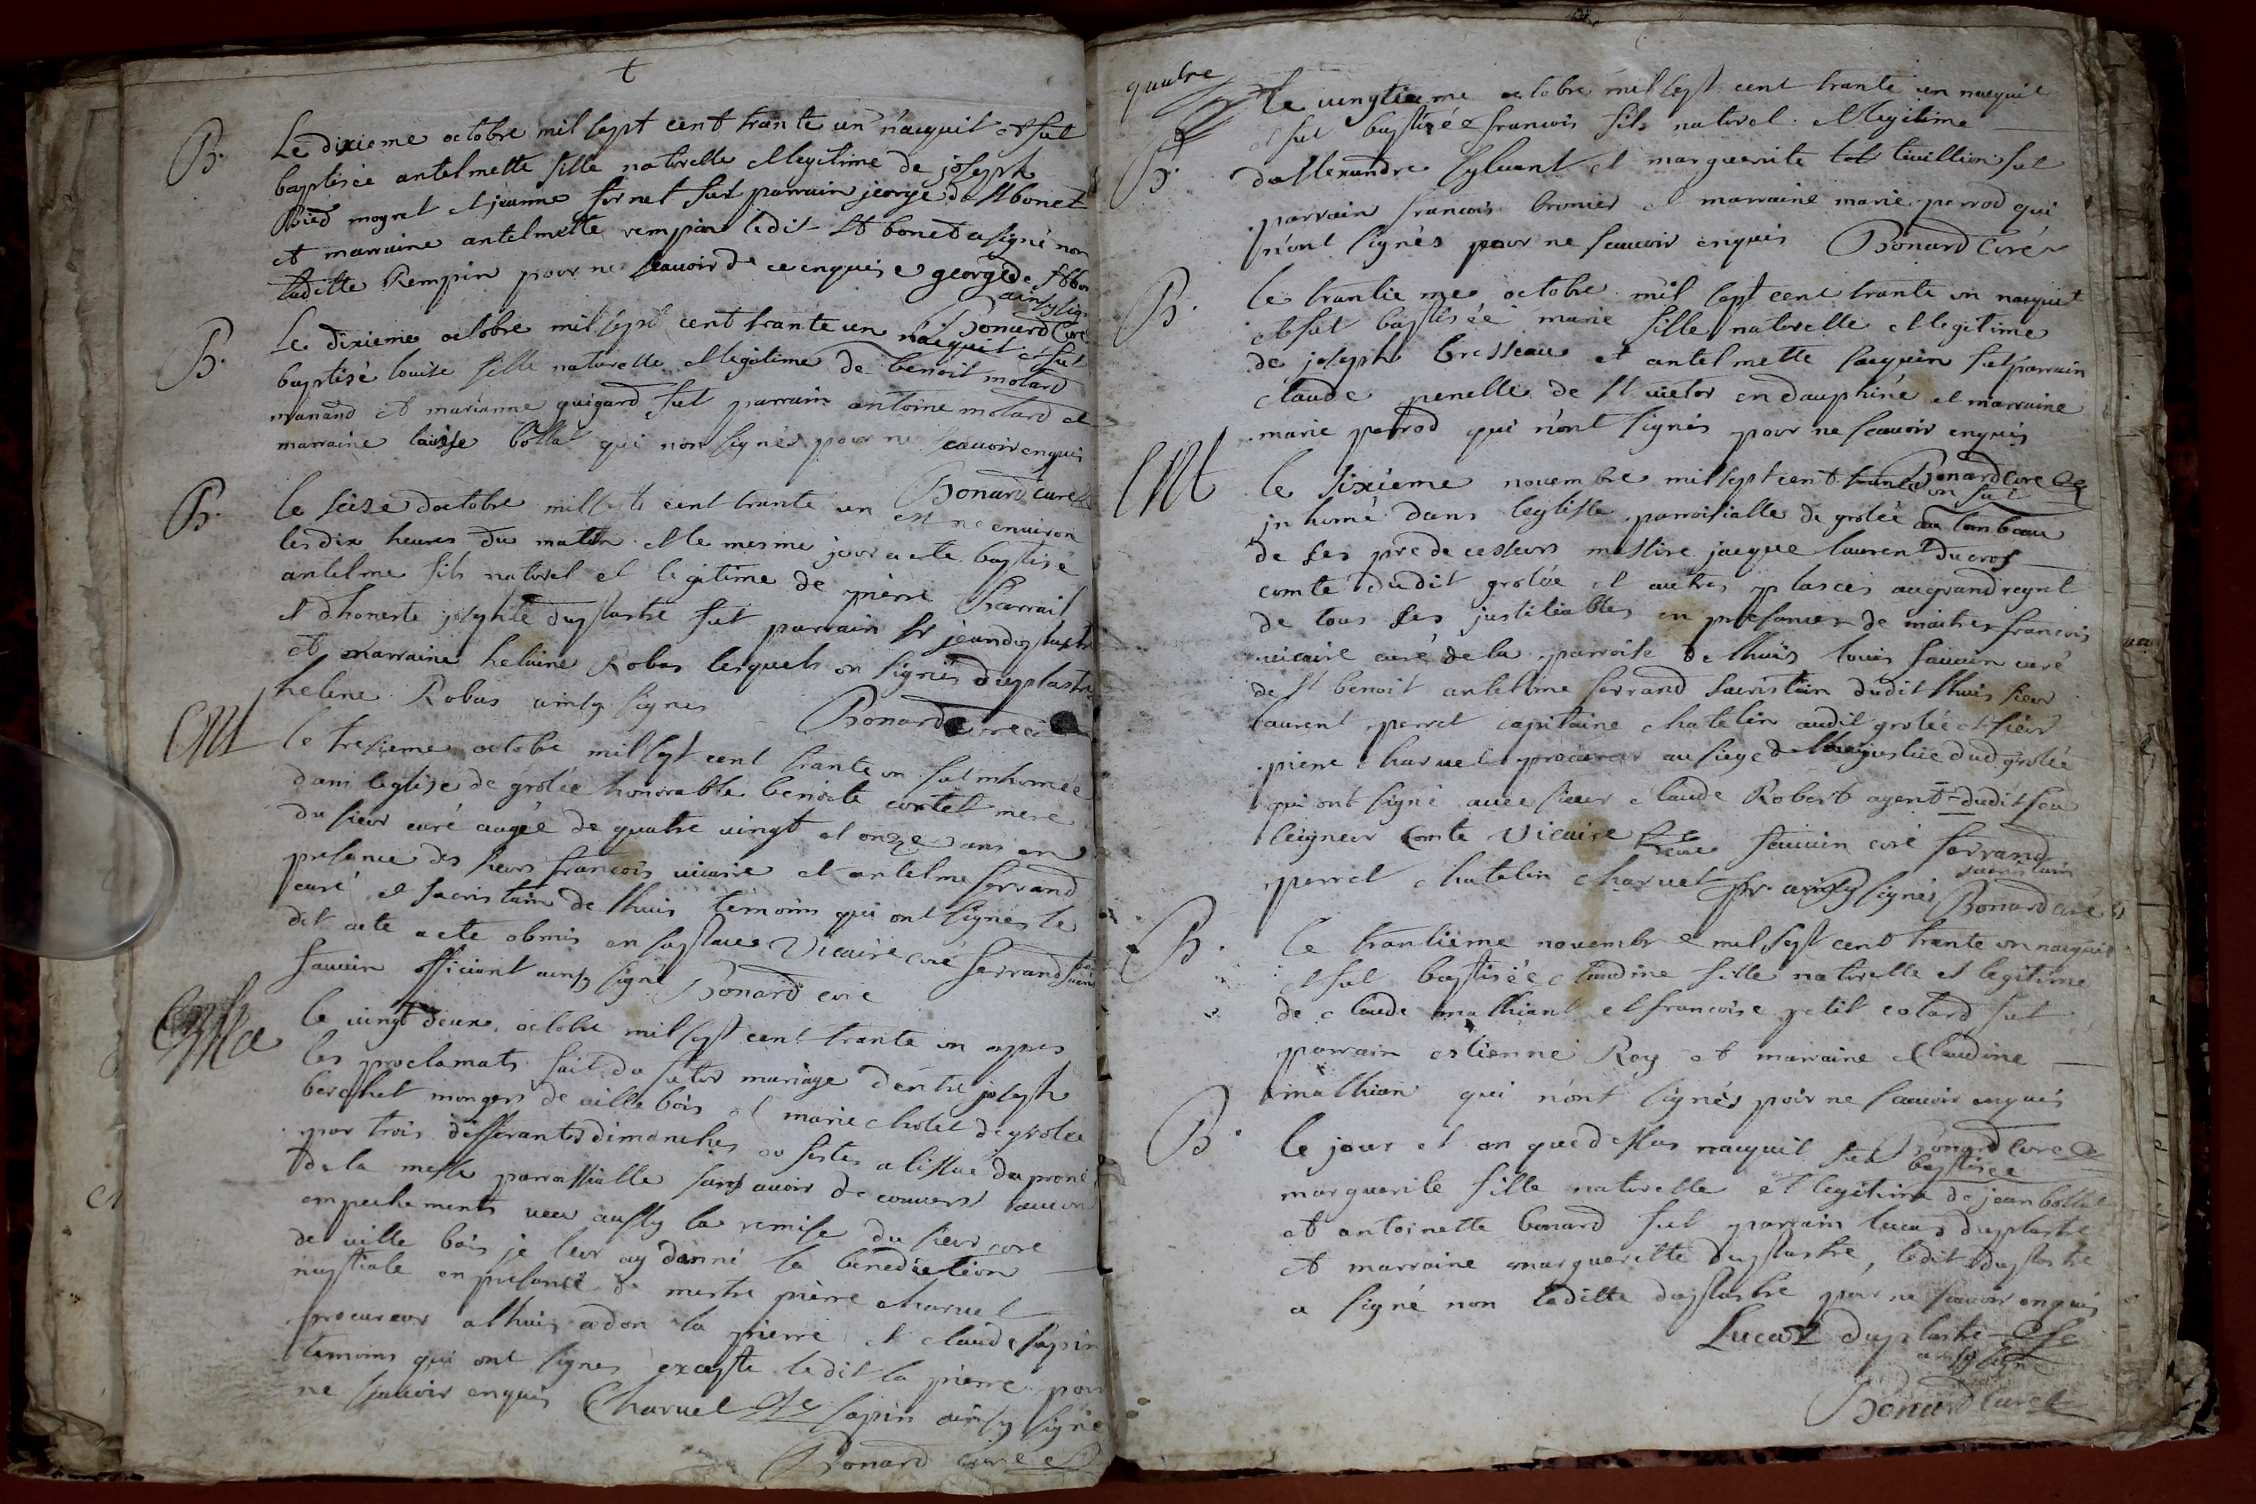 t
B. Le dixieme octobre mil sept cent trante un nacquit et fut
baptisée antelmette fille naturelle et legitime de joseph
Bied moyret et jeanne fornet fut parrain jeorge de st bonet
et marraine antelmette rempin ledit st bonet a signé non
laditte Rempin pour ne scavoir de ce enquise george de st bon
ainsy sig
Bonard Curé
B. Le dixieme octobre mil sept cent trante un nacquit et fut
baptisé louise fille naturelle et legitime de benoit motard
manand et marianne guigard fut parrain antoine motard et
marraine louise bollat qui non signés pour ne scavoir enquis
Bonard curé
B. le seize doctobre mil sept cent trante un est ne environ
les dix heures du matin et le mesme jour a ete baptisé
antelme fils naturel et legitime de pierre Barrail
et dhoneste josephte duplastre fut parrain Sr jean duplastre
et marraine helaine Robas lesquels on signés duplastre
helene Robas ainsy signes Bonard curé
Mt le tresieme octobre mil sept cent trante un fut inhumée
dans leglise de grolée honorable benoite cortet mere
du sieur curé augée de quatre vingt et onze ans en
presence des sieurs francois vicaire et antelme ferrand
curé et sacristain de lhuis temoins qui ont signes le
dit acte acte obmis en sa place Vicaire curé ferrand sacris
Sauvin officiant ainsy signé Bonard curé
Ma le vingt deux octobre mil sept cent trante un apres
les proclamats fait du futur mariage dentre joseph
berchet mongers de ville bois et marie cholet de grolée
par trois differantes dimanches ou festes a lissue du prone
de la messe parroissialle sans avoir decouvert aucun
empechements veu aussy la remise du sieur curé
de ville bois je leur ay donné la benediction
nuptiale en presance de mestre pierre charuel
procureur a lhuis adon la pierre et claude sapin
temoins qui ont signes excepte ledit la pierre pour
ne scavoir enquis Charuel sapin ainsy signé
Bonard curé
quatre
B. Le vingtieme octobre mil sept cent trante un nacquit
et fut baptizé francois fils naturel et legitime
dallexandre sylvant et marguerite tevillion fut
parrain francois bronier et marraine marie perrod qui
nont signés pour ne scavoir enquis Bonard Curé
B. le trantie me octobre mil sept cent trante un nacquit
et fut baptisée marie fille naturelle et legitime
de joseph bresseau et antelmette sauquin fut parrain
claude penelle de st victor en dauphiné et marraine
marie perrod qui nont signés pour ne scavoir enquis
Bonard Curé
Mt le sixieme novembre mil sept cent trante un fut
jn humé dans leglisse parroisialle de grolée au tombeau
de ses predecesseurs messire jacque laurent Ducros
comte dudit grolée et autres plasces au grand regret
de tous ses justiciables en presances de maitres francois
vicaire curé de la parroise de lhuis louis sauvin curé
de st benoit antelme ferrand sacristain dudit lhuis sieur
laurent perret capitaine chatelin audit grolée et sieur
pierre charuel procureur au siege de la justice dud grolée
qui ont signé avec sieur claude Robert agent dudit feu
seigneur comte Vicaire curé Sauvin curé ferrand
sacristain
perret chatelin charuel ainsy signés Bonard curé
B. le trantiéme novembre mil sept cent trante un nacquit
et fut baptisée claudine fille naturelle et legitime
de claude mathian et francoise petit cotard fut
parrain estienne Roy et marraine claudine
mathian qui nont signés pour ne scavoir enquis
Bonard Curé
B. le jour et an que dessus nacquit fut baptisée
marguerite fille naturelle et legitime de jean bollat
et antoinette bonard fut parrain lucas duplastre
et marraine marguerite duplastre, ledit duplastre
a signé non laditte duplastre pour ne scavoir enquis
Lucaz duplastre
ainsy signé
Bonard Curé